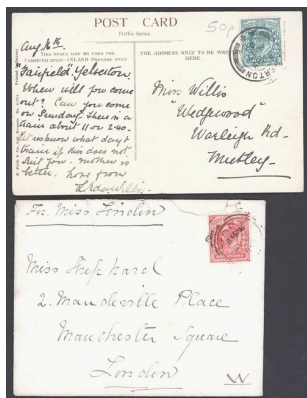 POST CARD
50p
Firths Series
THIS SPACE MAY BE USED FOR
COMMUNICATION—INLAND POSTAGE ONLY
THE ADDRESS ONLY TO BE
HERE.
Aug 16th
"Fairfield" Yelverton.
When will you come
out? Can you come
on Sunday. There is a
train about 11 or 2.40.
Let us know what day &
train if this does not
suit you. Mother is
better. Love from
Willis
Miss Willis
"Wedgwood"
Warleigh Rd.
Mutley
For Miss London
Miss Sheppard
2. Mandeville Place
Manchester Square
London
W